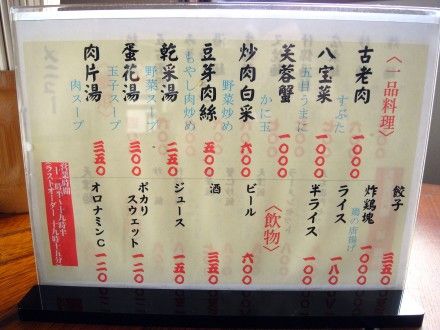 〈一品料理〉
古老肉
すぶた
一〇〇〇
八宝菜
五目うまに
一〇〇〇
芙蓉蟹
かに玉
一〇〇〇
炒肉白采
野菜炒め
六〇〇
豆芽肉絲
もやし肉炒め
五〇〇
乾采湯
野菜スープ
二五〇
蛋花湯
玉子スープ
三五〇
肉片湯
肉スープ
三五〇
餃子
三五〇
炸鶏塊
鶏の唐揚げ
一〇〇〇
ライス
一八〇
半ライス
一〇〇
〈飲物〉
ビール
六〇〇
酒
三五〇
ジュース
一五〇
ポカリスウェット
一二〇
オロナミンC
一二〇
営業時間
ラストオーダー 十九時十五分